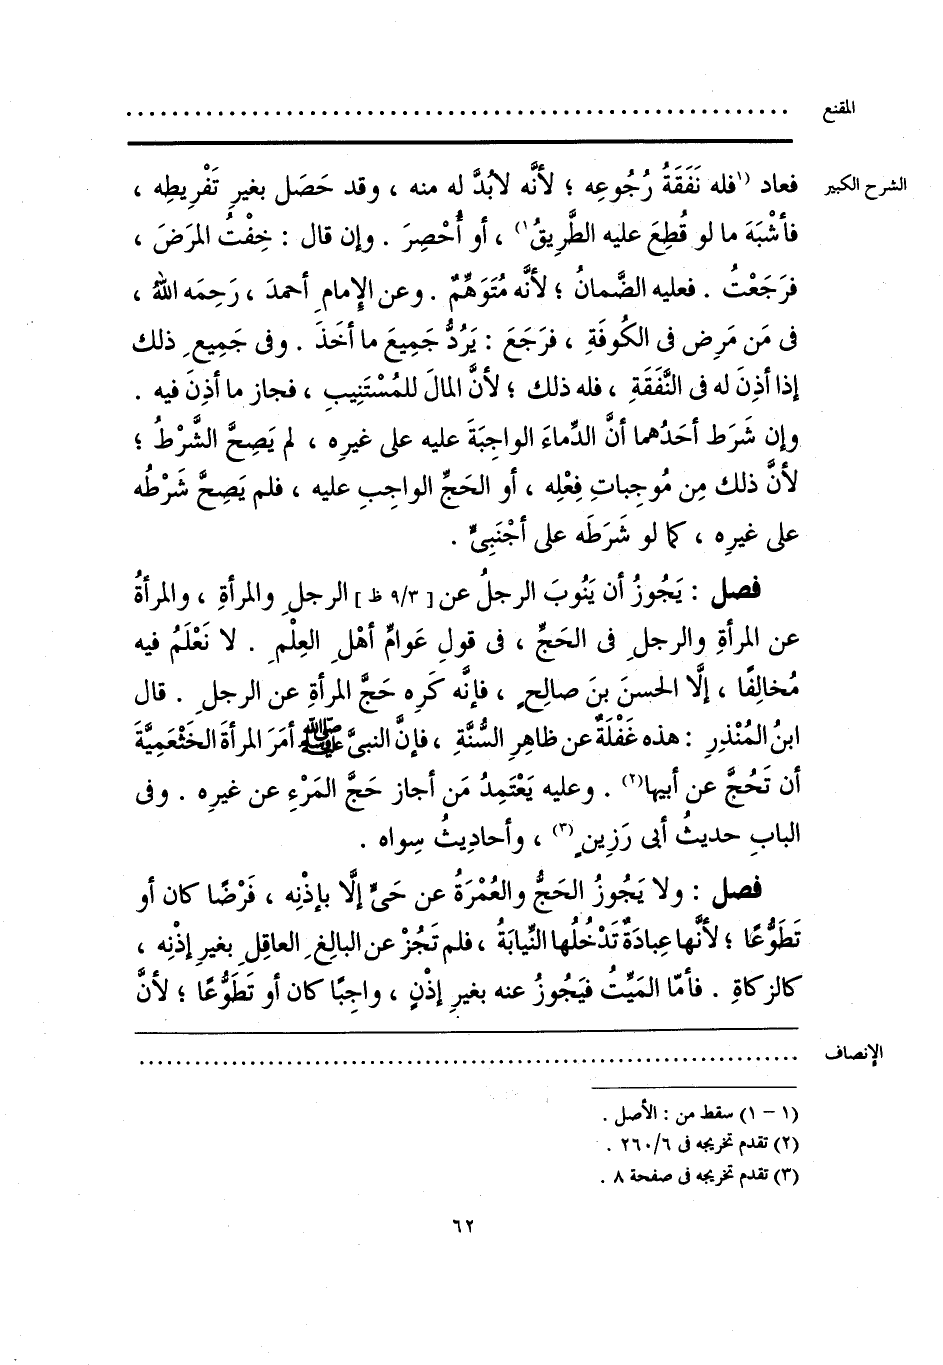 المقنع ..........................................................
الشرح الكبير فعاد (١فله نَفَقَةُ رُجُوعِه ؛ لأنَّه لابُدَّ له منه ، وقد حَصَل بغيرِ تَفْرِيطِه ،
فأشْبَهَ ما لو قُطِعَ عليه الطَّرِيقُ١) ، أو أُحْصِرَ . وإن قال : خِفْتُ المَرَضَ ،
فرَجَعْتُ . فعليه الضَّمانُ ؛ لأنَّه مُتَوَهِّمٌ . وعن الإِمامِ أحمدَ ، رَحِمَه اللهُ ،
فى مَن مَرِض فى الكُوفَةِ ، فرَجَعَ : يَرُدُّ جَمِيعَ ما أخَذَ . وفى جَمِيعِ ذلك
إذا أذِنَ له فى النَّفَقَةِ ، فله ذلك ؛ لأنَّ المالَ للمُسْتَنِيبِ ، فجاز ما أذِنَ فيه .
وإن شَرَط أحَدُهما أنَّ الدِّماءَ الواجِبَةَ عليه على غيرِه ، لم يَصِحَّ الشَّرْطُ ؛
لأنَّ ذلك مِن مُوجِباتِ فِعْلِه ، أو الحَجِّ الواجِبِ عليه ، فلم يَصِحَّ شَرْطُه
على غيرِه ، كما لو شَرَطَه على أجْنَبِىٍّ .
فصل : يَجُوزُ أن يَنُوبَ الرجلُ عن [ ٩/٣ ظ ] الرجلِ والمرأةِ ، والمرأةُ
عن المرأةِ والرجلِ فى الحَجِّ ، فى قولِ عَوامِّ أهْلِ العِلْمِ . لا نَعْلَمُ فيه
مُخالِفًا ، إلَّا الحسنَ بنَ صالحٍ ، فإنَّه كَرِه حَجَّ المرأةِ عن الرجلِ . قال
ابنُ المُنْذِرِ : هذه غَفْلَةٌ عن ظاهِرِ السُّنَّةِ ، فإنَّ النبىَّ ﷺ أمَرَ المرأةَ الخَثْعَمِيَّةَ
أن تَحُجَّ عن أبيها(٢) . وعليه يَعْتَمِدُ مَن أجاز حَجَّ المَرْءِ عن غيرِه . وفى
البابِ حديثُ أبى رَزِينٍ(٣) ، وأحادِيثُ سِواه .
فصل : ولا يَجُوزُ الحَجُّ والعُمْرَةُ عن حَىٍّ إلَّا بإذْنِه ، فَرْضًا كان أو
تَطَوُّعًا ؛ لأنَّها عِبادَةٌ تَدْخُلُها النِّيابَةُ ، فلم تَجُزْ عن البالِغِ العاقِلِ بغيرِ إذْنِه ،
كالزكاةِ . فأمّا المَيِّتُ فيَجُوزُ عنه بغيرِ إذْنٍ ، واجِبًا كان أو تَطَوُّعًا ؛ لأنَّ
الإنصاف ..........................................................
(١ - ١) سقط من : الأصل .
(٢) تقدم تخريجه فى ٢٦٠/٦ .
(٣) تقدم تخريجه فى صفحة ٨ .
٦٢